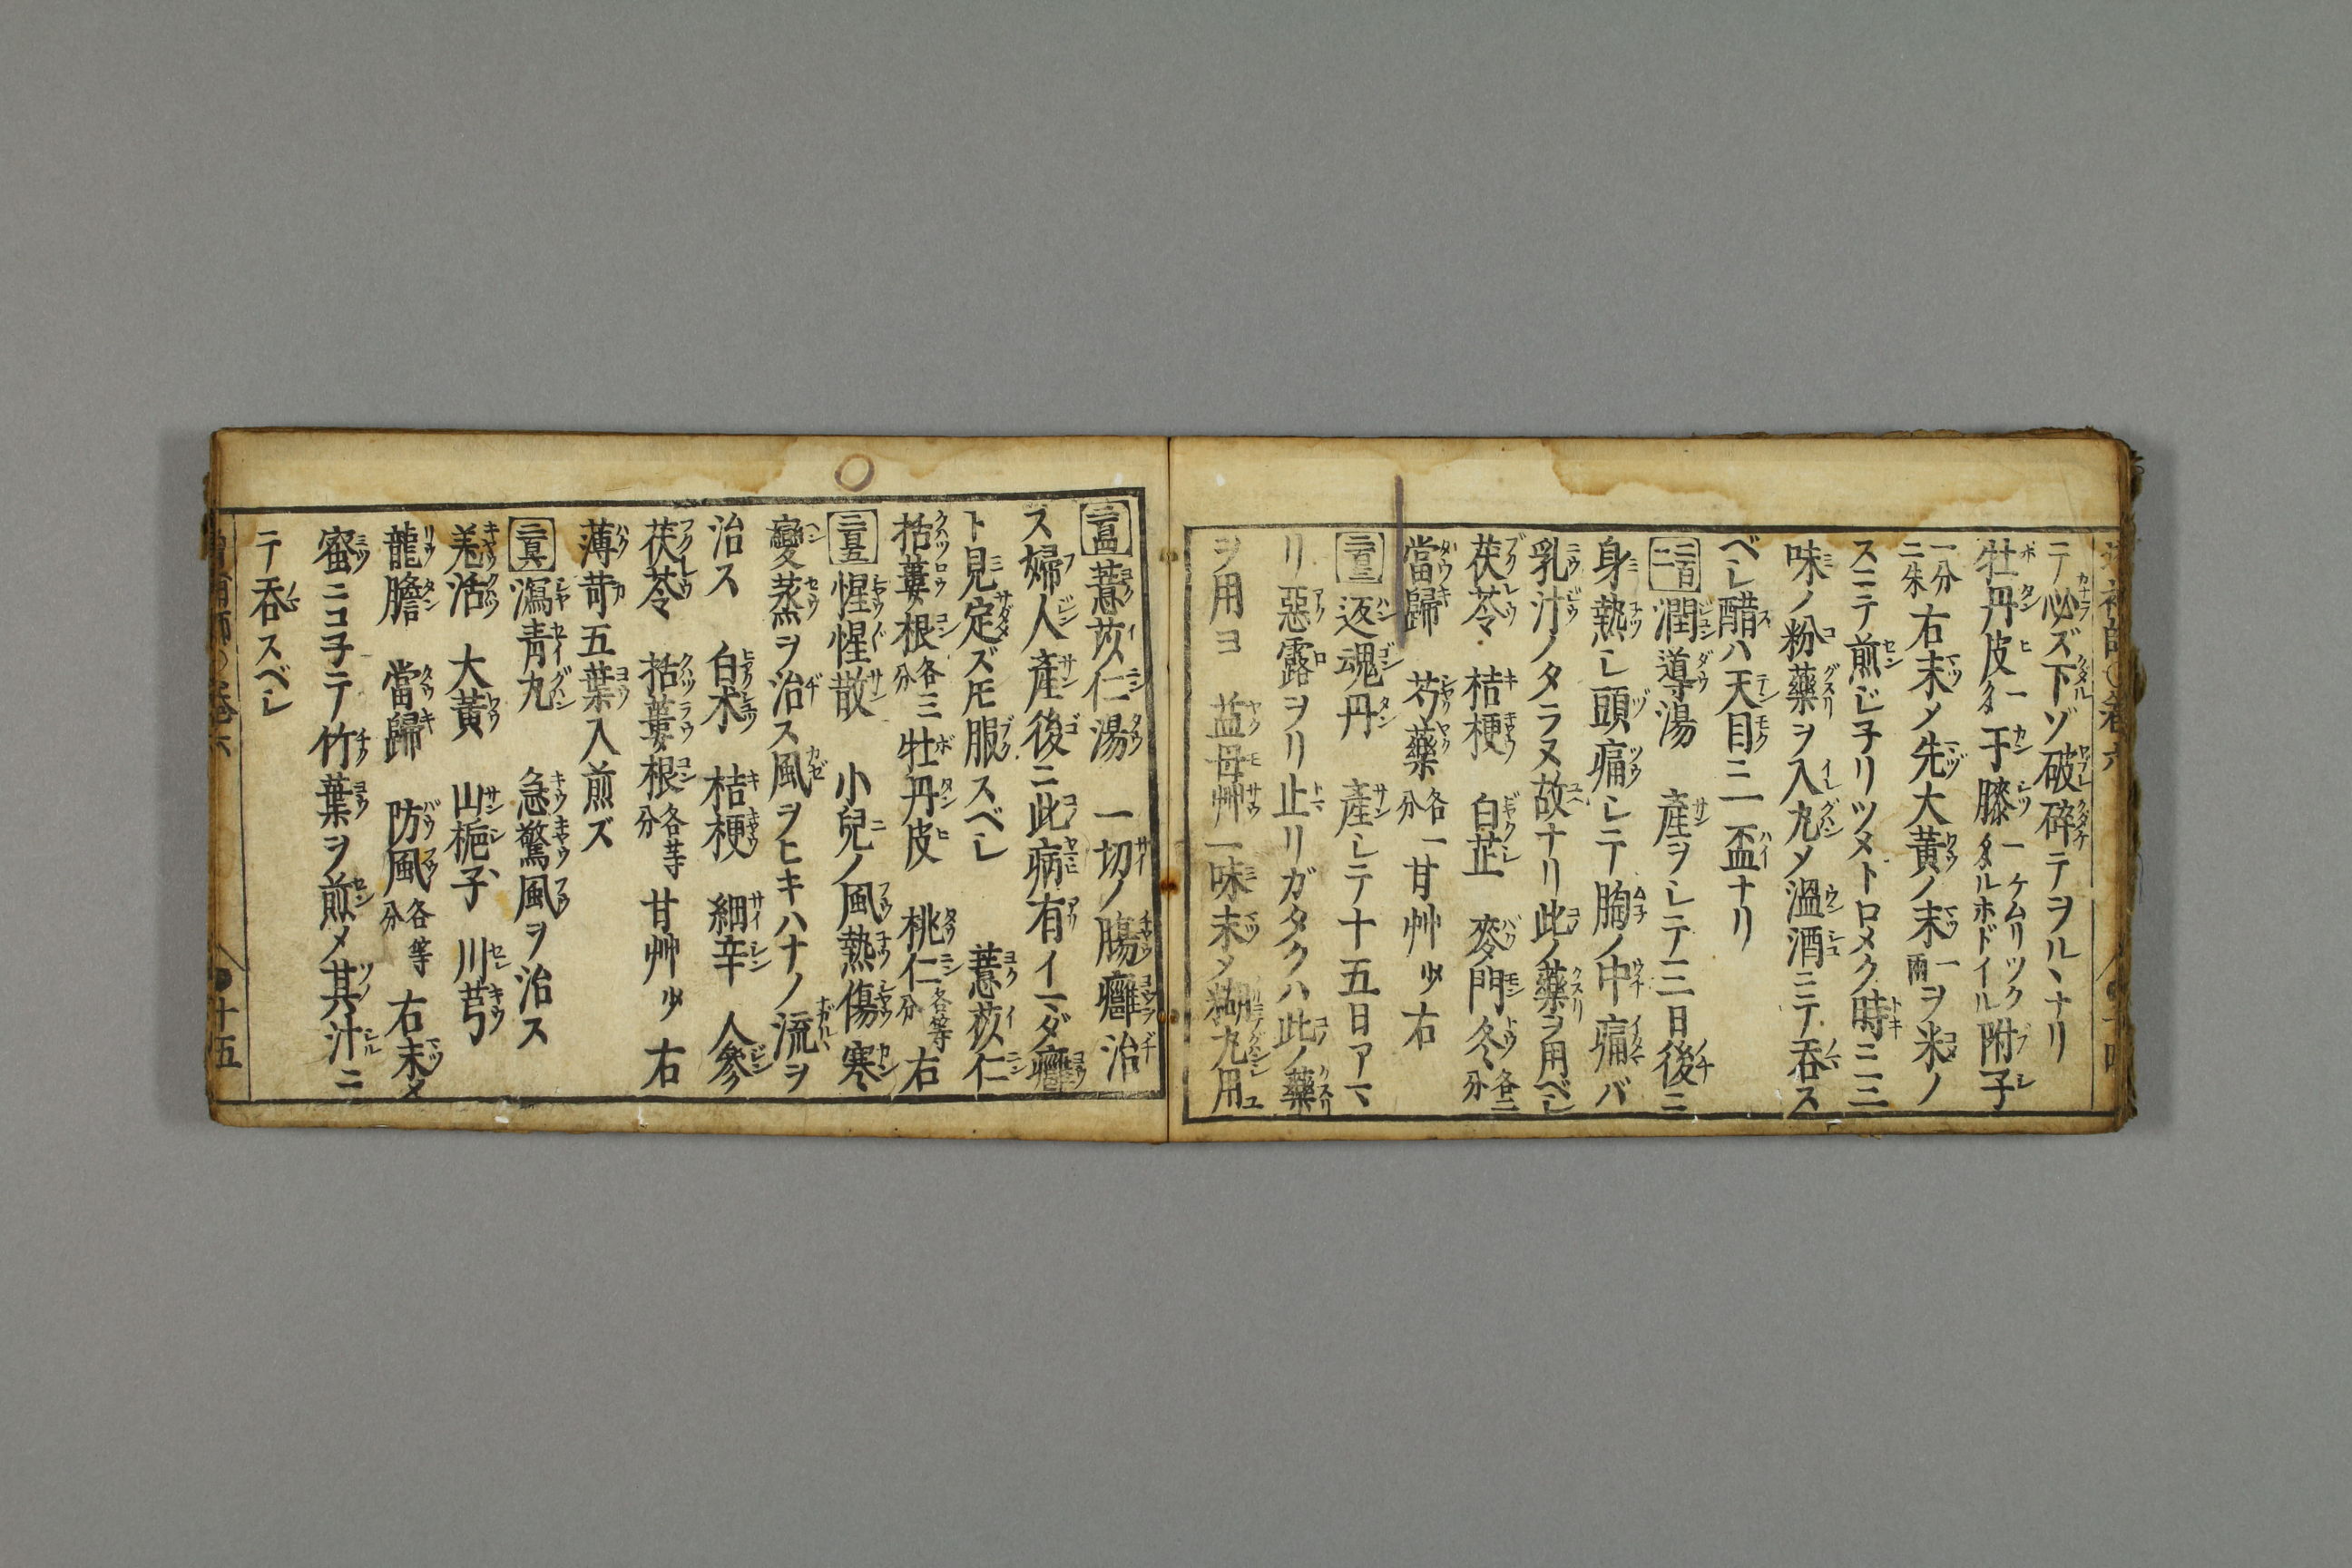 テ必ズ下ゾ破碎テヲル、ナリ
牡丹皮一タ 干膝一ケムリツクタルホドイル 附子
一分二朱 右末メ先大黄ノ末一兩ヲ米ノ
スニテ煎ジ子リツメトロメク時ニ三
味ノ粉藥ヲ入丸メ溫酒ニテ呑ス
ベシ醋ハ天目ニ一盃ナリ
二百二 潤導湯 產ヲシテ三日後ニ
身熱シ頭痛シテ胸ノ中痛バ
乳汁ノタラヌ故ナリ此ノ藥ヲ用ベシ
茯苓 桔梗 白芷 麥門冬各二分
當歸 芍藥各一分 甘艸少右
二百三 返魂丹 產シテ十五日アマ
リ惡露ヲリ止リガタクハ此ノ藥
ヲ用ヨ 益母艸一味末メ糊丸用
二百四 薏苡仁湯 一切ノ腸癰治
ス婦人產後ニ此病有イマダ癰
ト見定ズ𪜈服スベシ 薏苡仁
括蔞根各三分 牡丹皮 桃仁各等分 右
二百五 惺惺散 小兒ノ風熱傷寒
變蒸ヲ治ス風ヲヒキハナノ流ヲ
治ス 白朮 桔梗 細辛 人參
茯苓 括蔞根各等分 甘艸少 右
薄荷五葉入煎ズ
二百六 瀉青丸 急驚風ヲ治ス
羗活 大黃 山梔子 川芎
龍膽 當歸 防風各等分 右末メ
蜜ニコ子テ竹葉ヲ煎メ其汁ニ
テ呑スベシ
十五